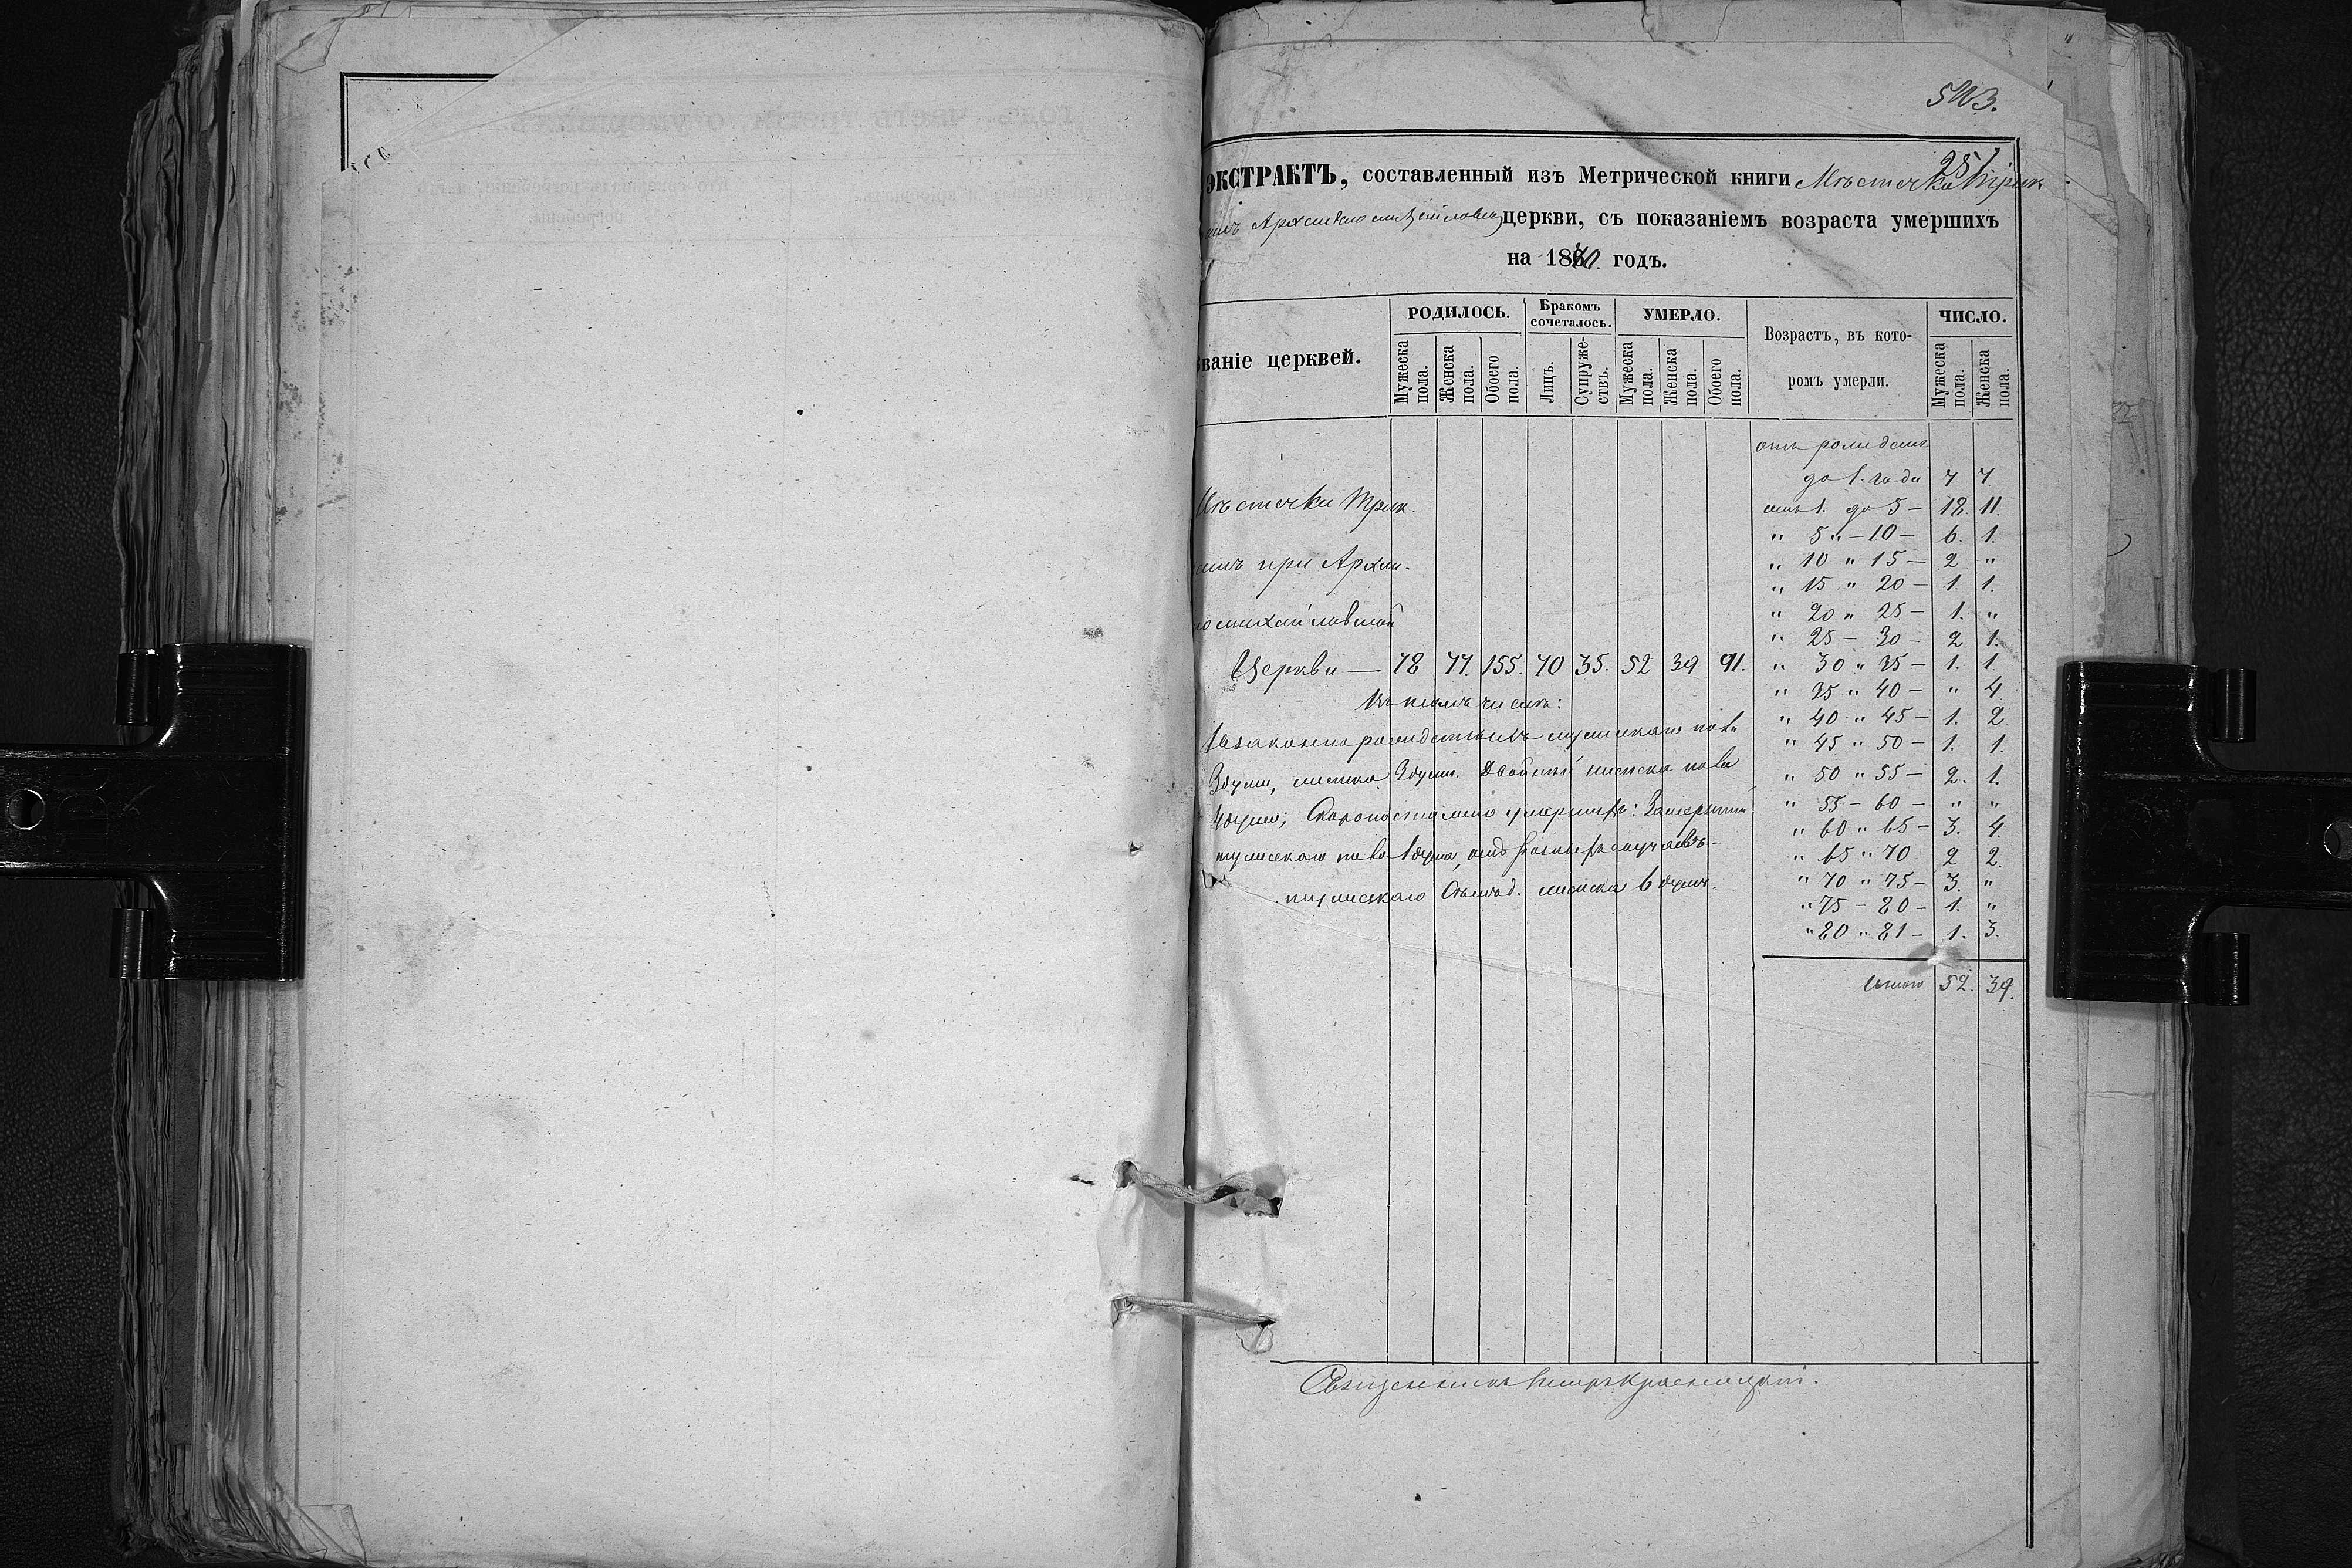 503.
251
ЭКСТРАКТЪ, составленный изъ Метрической книги Мѣстечка
церкви, съ показаніемъ возраста умершихъ
на 1870 годъ.
званіе церквей.
РОДИЛОСЬ.
Мужеска пола.
Женска пола.
Обоего пола.
Бракомъ сочеталось.
Лицъ.
Супружествъ.
УМЕРЛО.
Мужеска пола.
Женска пола.
Обоего пола.
Возрастъ, въ которомъ умерли.
ЧИСЛО.
Мужеска пола.
Женска пола.
Мѣстечка
при Архи-
михайловской
Церкви — 78 77. 155. 70 35. 52 39 91.
Въ томъ числѣ:
Незаконнорожденныхъ мужскаго пола
3 души, женска 3 души. Двойней женска пола
4 души; Скоропостижно умершихъ:
мужескаго пола 1 душа, отъ разныхъ случаевъ –
мужескаго женска 6 душъ.
отъ рожденія
до 1. года 7 7
отъ 1. до 5 – 18. 11.
" 5 " – 10 – 6. 1.
" 10 " 15 – 2 "
" 15 " 20 – 1. 1.
" 20 " 25 – 1. "
" 25 – 30 – 2 1.
" 30 " 35 – 1. 1.
" 35 " 40 – " 4
" 40 " 45 – 1. 2
" 45 " 50 – 1. 1.
" 50 " 55 – 2. 1.
" 55 – 60 – " "
" 60 " 65 – 3. 4.
" 65 " 70 2 2.
" 70 " 75 – 3. "
" 75 – 80 – 1. "
" 80 " 81 – 1. 3.
Итого 52. 39.
Священникъ Петръ